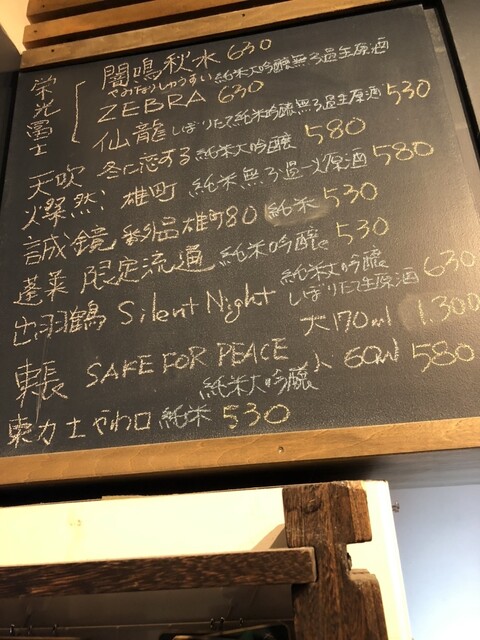 栄光冨士
闇鳴秋水 630
やみなりしゅうすい 純米大吟醸無ろ過生原酒
ZEBRA 630
仙龍 しぼりたて純米吟醸無ろ過生原酒 530
天吹 冬に恋する 純米大吟醸 580
燦然 雄町 純米無ろ過一火原酒 580
誠鏡 番外品雄町80 純米 530
蓬莱 限定流通 純米吟醸 530
出羽鶴 Silent Night 純米大吟醸 しぼりたて生原酒 630
大170ml 1.300
東長 SAKE FOR PEACE 小 60ml 580
純米大吟醸
東力士 やわ口 純米 530